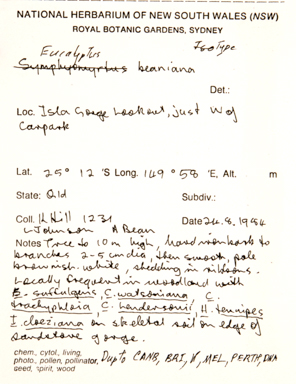 NATIONAL HERBARIUM OF NEW SOUTH WALES (NSW)
ROYAL BOTANIC GARDENS, SYDNEY
Eucalyptus Isotype
Symphyomyrtus beaniana
Det.:
Loc. Isla Gorge Lookout, just W of
Carpark
Lat. 25° 12 'S Long. 149° 58 'E, Alt. m
State: Qld Subdiv.:
Coll. K Hill 1231 Date 24.8.1984
L Johnson A Bean
Notes Tree to 10m high, hard ironbark to
branches 2-5 cm dia, then smooth, pale
brownish-white, shedding in ribbons.
Locally frequent in woodland with
E. suffulgens, C. watsoniana C.
trachyphloia C. hendersonii, H. tenuipes
E. cloeziana on skeletal soil on edge of
sandstone gorge.
chem, cytol, living,
photo., pollen, pollinator, Dup to CANB, BRI, MEL, PERTH, DNA
seed, spirit, wood